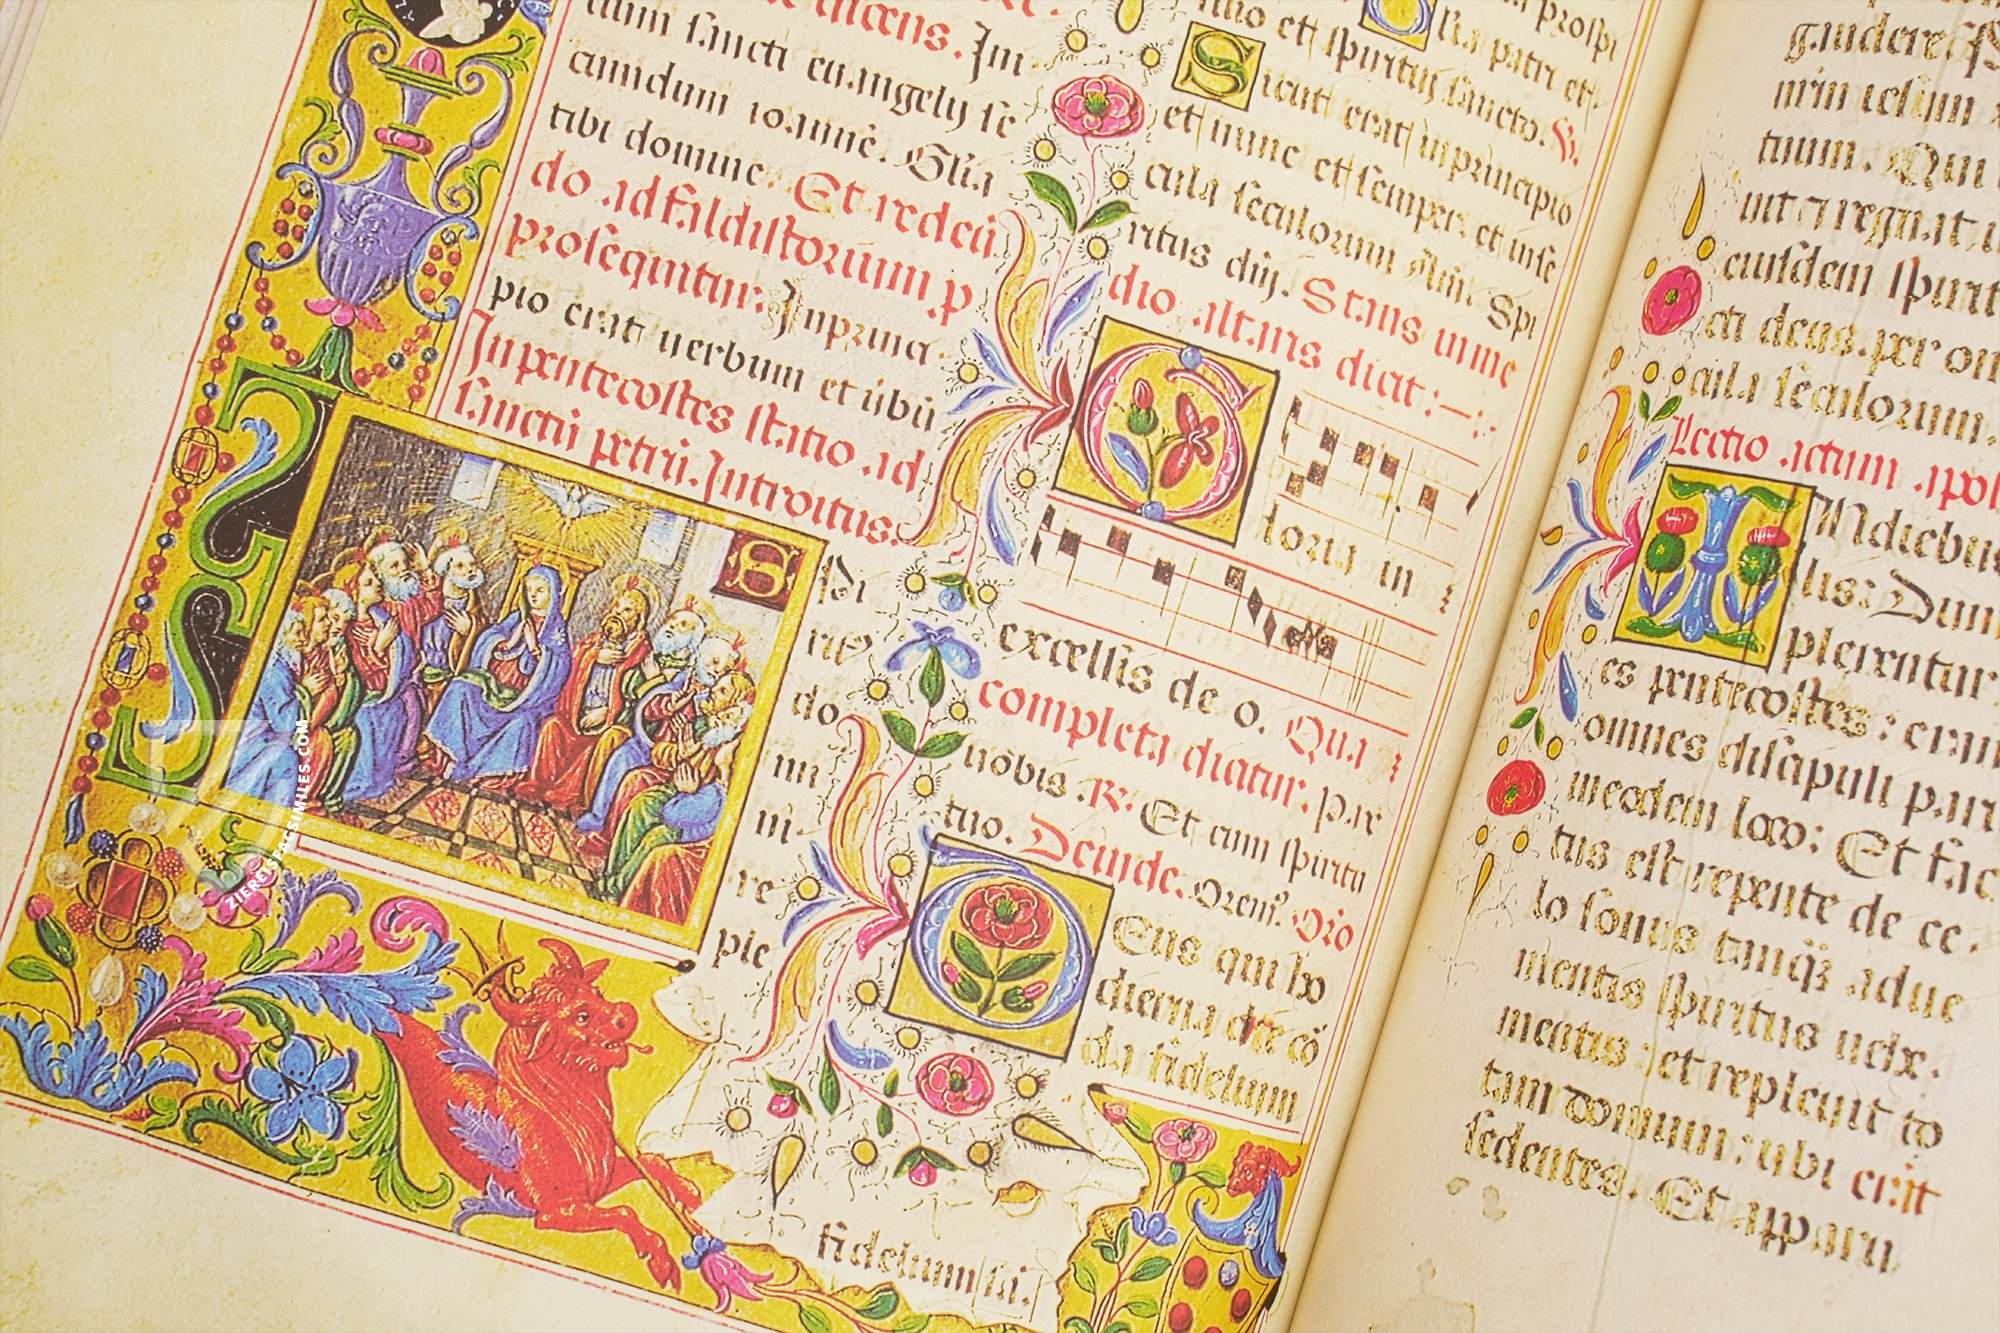 cundum sancti euangelij se
cundum ioannē. Gl̄ia
tibi domine. Et redeū
do ad faldistorium p
prosequitur: Inprinci
pio erat uerbum et ūbū
In pentecostes statio ad
sanctū petrū. Introitus.
S
Spi
ritus
do
mi
ni
re
ple
filio et spiritui sancto. V.
Sicut erat in principio
et nunc et semper, et in se
cula seculorum Am̄. Spi
ritus dn̄j. Stans in me
dio altaris dicit:
Gloria in
excelsis de o. Qua
completa dicitur: Pax
uobis. R. Et cum spiritu
tuo. Deinde. Orem9. Oro
Deus qui ho
dierna die co
da fidelium
fidelium sā.
gaudere. P
tuum. Qui
uit et regnat i
eiusdem spirit
ti deus. per om
cula seculorum.
Lectio actuum apos
In diebus
lis: Dum
plerentur
es pentecostes: eran
omnes discipuli pari
in eodem loco: Et fac
tus est repente de ce
lo sonus tanq̄ȝ adue
nientis spiritus uehe
mentis: et repleuit to
tam domum: ubi erāt
sedentes. Et apparu
ZIEREIS FACSIMILES.COM